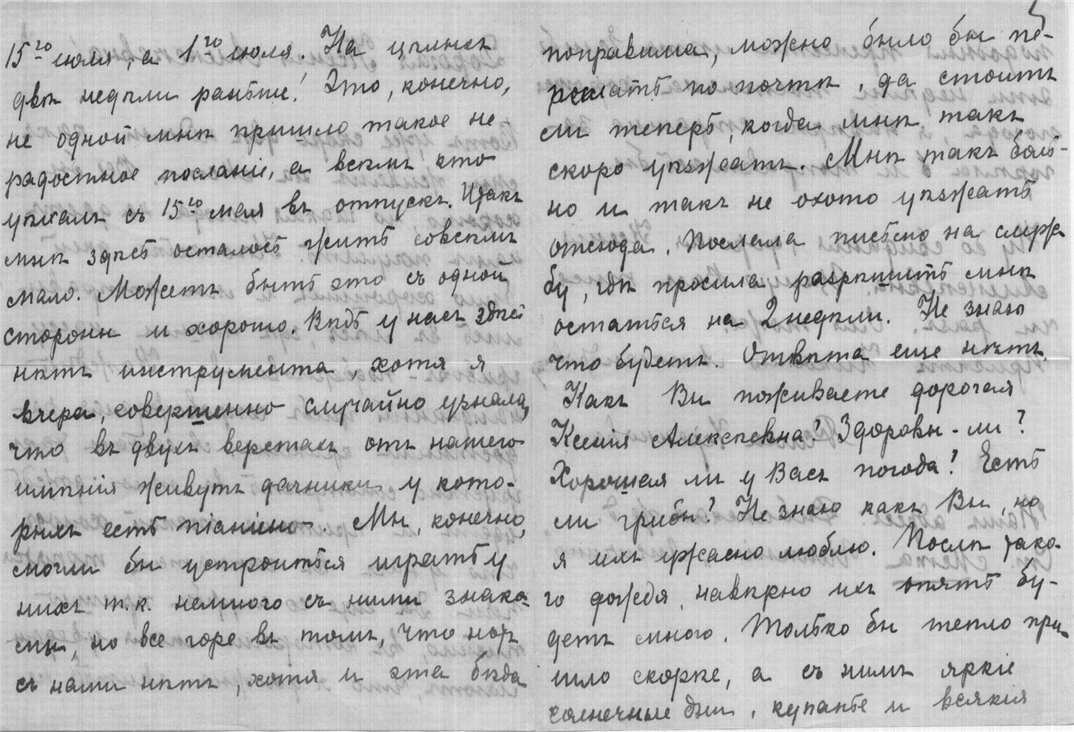 15го іюля, а 1го іюля. На цѣлыхъ
двѣ недѣли раньше! Это, конечно,
не одной мнѣ пришло такое не
радостное посланіе, а всѣмъ кто
уѣхалъ съ 15го мая въ отпускъ. Итакъ
мнѣ здѣсь осталось жить совсѣмъ
мало. Можетъ быть это съ одной
стороны и хорошо. Вѣдь у насъ здѣсь
нѣтъ инструмента, хотя я
вчера, совершенно случайно узнала,
что въ двухъ верстахъ отъ нашего
имѣнія живутъ дачники у кото-
рыхъ есть піанино. Мы, конечно,
смогли бы устроиться играть у
нихъ т.к. немного съ ними знако-
мы, но все горе въ томъ, что нотъ
съ нами нѣтъ, хотя и эта бѣда
поправима, можно было бы пе-
реслать по почтѣ, да стоитъ
ли теперь, когда мнѣ такъ
скоро уѣзжать. Мнѣ такъ боль-
но и такъ не охото уѣзжать
отсюда. Послала письмо на служ-
бу, гдѣ просила разрѣшить мнѣ
остаться на 2 недѣли. Не знаю
что будетъ. Отвѣта еще нѣтъ.
Какъ Вы поживаете дорогая
Ксенія Алексѣевна? Здоровы-ли?
Хорошая ли у Васъ погода? Есть
ли грибы? Не знаю какъ Вы, но
я ихъ ужасно люблю. Послѣ тако-
го дождя, навѣрно ихъ опять бу-
детъ много. Только бы тепло при-
шло скорѣе, а съ нимъ яркіе
солнечные дни, купанье и всякія